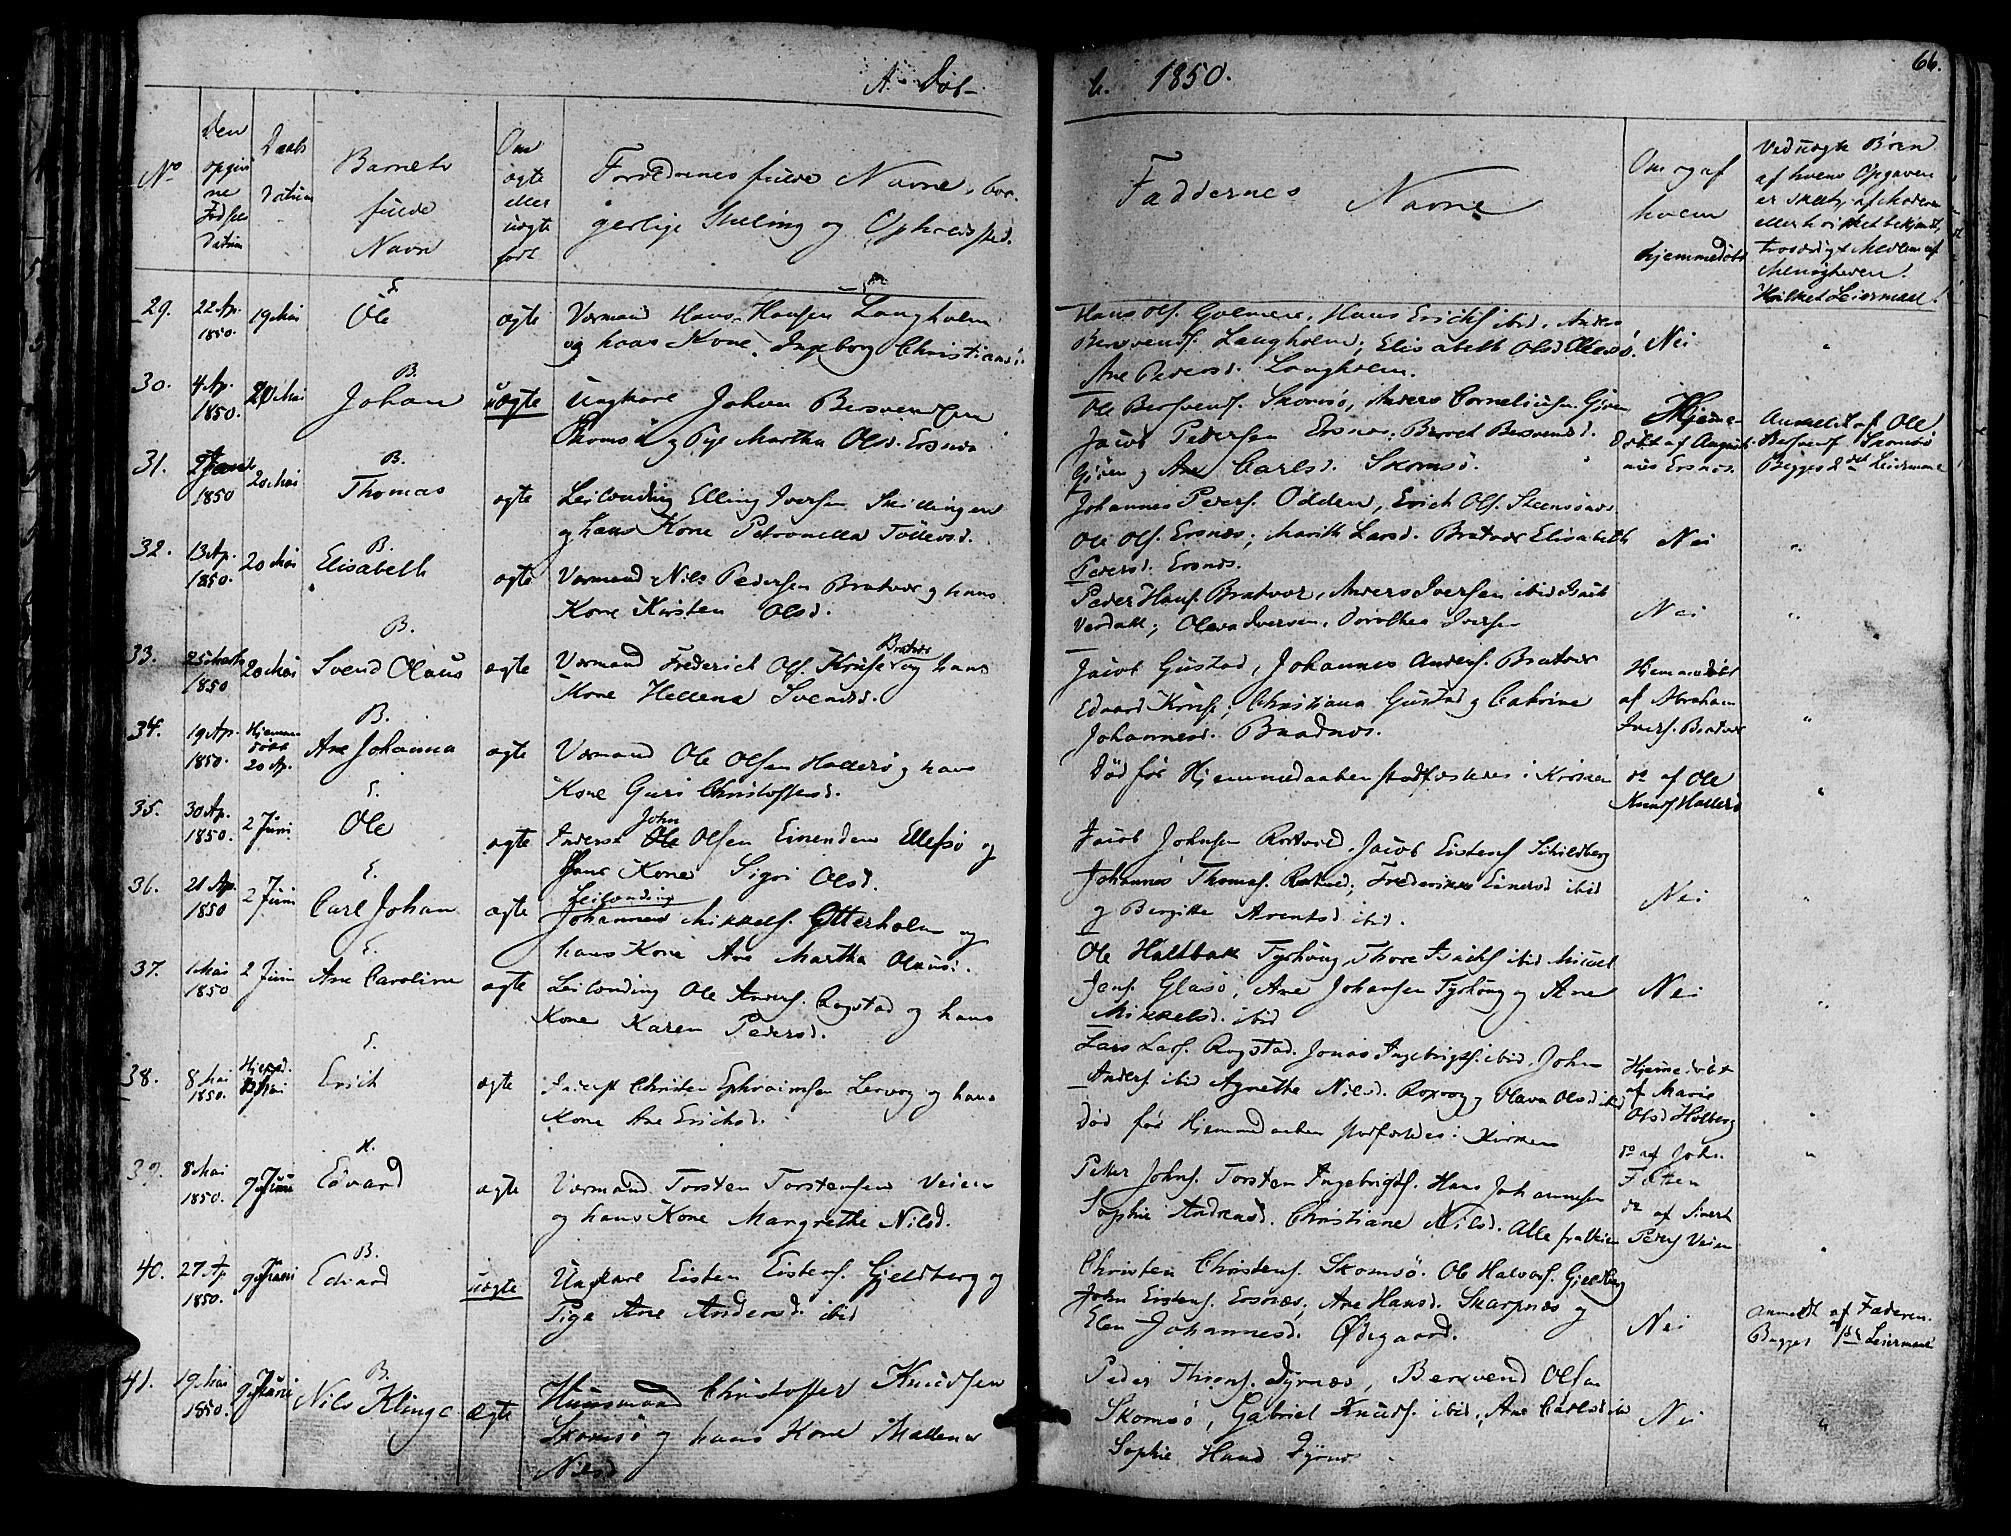 A. Døb-
t. 1850.
66.
No
Den opgivne Fødsels Datum
Daabs Datum
Barnets fulde Navn
Om ægte eller uægte født
Forældrenes fulde Navne, borgerlige Stilling og Opholdsted.
Faddernes Navne
Om og af hvem hjemmedøbt
Ved uægte Børn af hvem Opgaven er skeet, af Moderen eller
29. 22 Ap. 1850. 19 Mai
E.
Ole
ægte
Vormand Hans Hansen Langholm
og hans Kone Ingeborg Christiansd.
Hans Ols. Hans Erichs. ibid, Anders
Langholm; Elisabeth Olsd
Ane Pedersd. Langholm.
Nei
30. 4 Ap. 1850. 20 Mai
B.
Johan
uægte
Ungkarl Johan Bersvendsen
Skomsö og Pige Martha Olsd. Ersnes
Ole Bersvends. Skomsö, Anders Corneliusen Gjøen
Jacob Pedersen Ersnes; Beret Bersvendsd.
Gjøen og Ane Carlsd. Skomsö.
Hjemmedöbt af Augusti-
nus Ersnes.
Anmeldt af Ole
Bersvends. Skomsö
Begges Leiermaal
31. 1850 20 Mai
B.
Thomas
ægte
Leilending Elling Iversen Skillingen
og hans Kone Petronella Tollevsd.
Johannes Peders. Odden, Erich Ols. Steensönes
Ole Ols. Ersnæs; Marith Larsd. Bratvær Elisabeth
Pedersd. Ersnes.
Nei
32. 13 Ap. 1850. 20 Mai
B.
Elisabeth
ægte
Vormand Nils Pedersen Bratvær og hans
Kone Kirsten Olsd.
Peder Hans. Bratvær, Anders Iversen ibid
Oleva Iversen, Dorothea Iversen
Nei
33. 25 Marts 1850 20 Mai
B.
Svend Olaus
ægte
Vormand Frederich Ols. Kruse Bratvær og hans
Kone Hellena Svendsd.
Jacob Gustad, Johannes Anders. Bratvær
Edvard Kruse; Christiana Gustad og Catrine
Johannesd. Bradnes.
Hjemmedöbt
af Abraham
Ivers. Bratvær
34. 19 Ap. 1850. Hjemmedöbt 20 Ap.
B.
Ane Johanna
ægte
Vormand Ole Olsen Hallerö og hans
Kone Guri Christoffersd.
Död för Hjemmedaaben stadfæstedes i Kirken
do af Ole
Knuds. Hallerö
35. 30 Ap. 1850. 2 Juni
E.
Ole
ægte
Inderst John Olsen Einenden Ellefsö og
Hans Kone Sigri Olsd.
Jacob Johnsen Rostvold, Jacob Eistens. Schildberg
Johannes Thomas. ; Frederikke Einersd ibid
og Bergitte Arentsd. ibid.
Nei
36. 21 Ap. 1850 2 Juni
E.
Carl Johan
ægte
Leilending
Johannes Mikkels. Ytterholm og
hans Kone Ane Martha Olausd.
Ole Holtbak Tyrhoug, Thore ibid Mikkel
Jens. Glasö, Ane Johansen Tyrhoug og Ane
Mikkelsd. ibid
Nei
37. 1 Mai 1850 2 Juni
E.
Ane Caroline
ægte
Leilending Ole Anders. Rogstad og hans
Kone Karen Pedersd.
Lars Lars. Rogstad. Jonas Ingebrigts. ibid. John
Anders. ibid Agnethe Nilsd. og Olava Olsd ibid
Hjemmedöbt
af Marie
Olsd Holberg
38. 8 Mai 1850.
E.
Erich
ægte
Inderst Christen Ephraimsen Lervog og hans
Kone Ane Erichsd.
Död för Hjemmedaaben stadfæstedes i Kirken
do af John
39. 8 Mai 1850. 9 Juni
H.
Edvard
ægte
Vormand Torsten Torstensen Veien
og hans Kone Margrethe Nilsd.
Peter Johns. Torsten Ingebrigts. Hans Johannesen
Sophie Andreasd. Christiane Nilsd. Alle fra Veien
do af Sivert
Peders Veien
40. 27 Ap 1850. 9 Juni
B.
Edvard
uægte
Ungkarl Eisten Eistens. Gjeldberg og
Pige Ane Andersd. ibid
Christen Christens. Skomsö. Ole Halvors. Gjeldberg
John Eistens. Ersnæs; Ane Hansd. Skarpnæs og
Elen Johannesd. Ødegaard.
Nei
Anmeldt af Faderen.
Begges 1ste Leiermaal
41. 19 Mai 1850. 9 Juni
B.
Nils Klinge
Ægte
Huusmand Christoffer Knudsen
Skomsö og hans Kone Mallena
Nilsd
Peder Thoms. Dyrnæs, Bersvend Olsen
Skomsö, Gabriel Knuds. ibid, Ane Carlsd ib
Sophie Dyrnes
Nei